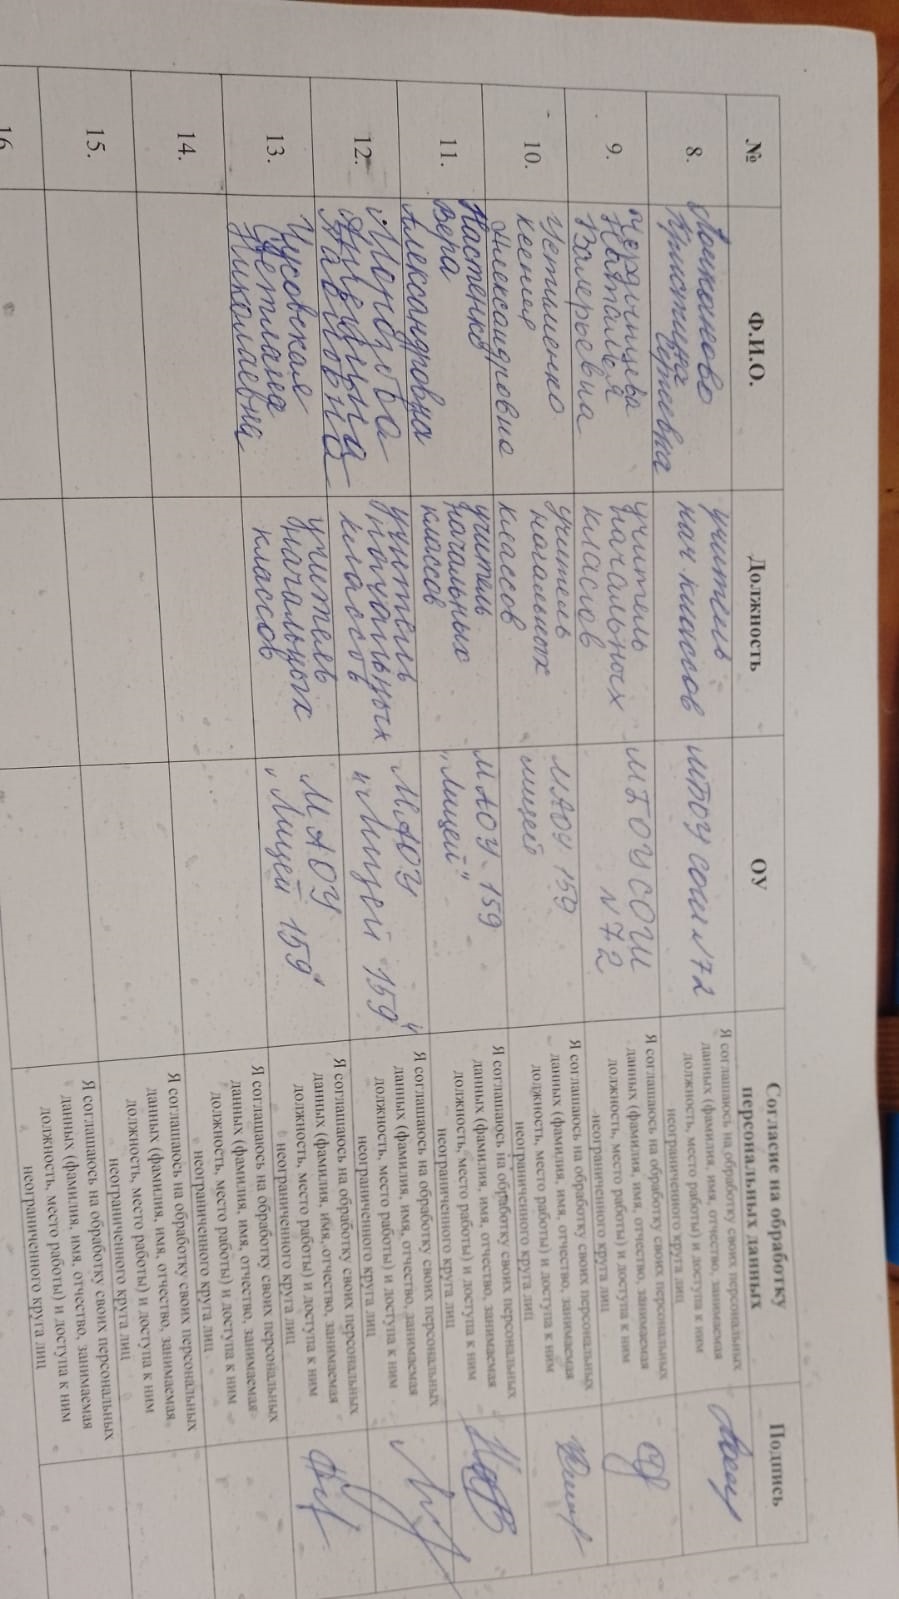 № Ф.И.О. Должность ОУ Согласие на обработку персональных данных Подпись
8.
Кристина
Сергеевна
учитель
нач классов
МБОУ СОШ №72
Я соглашаюсь на обработку своих персональных
данных (фамилия, имя, отчество, занимаемая
должность, место работы) и доступа к ним
неограниченного круга лиц
9.
Наталья
Валерьевна
учитель
начальных
классов
МБОУ СОШ
№72
Я соглашаюсь на обработку своих персональных
данных (фамилия, имя, отчество, занимаемая
должность, место работы) и доступа к ним
неограниченного круга лиц
10.
Устименко
Ксения
Александровна
учитель
начальных
классов
МАОУ 159
лицей
Я соглашаюсь на обработку своих персональных
данных (фамилия, имя, отчество, занимаемая
должность, место работы) и доступа к ним
неограниченного круга лиц
11.
Настенко
Вера
Александровна
учитель
начальных
классов
МАОУ 159
"Лицей"
Я соглашаюсь на обработку своих персональных
данных (фамилия, имя, отчество, занимаемая
должность, место работы) и доступа к ним
неограниченного круга лиц
12.
Павловна
учитель
начальных
классов
МАОУ
"Лицей 159"
Я соглашаюсь на обработку своих персональных
данных (фамилия, имя, отчество, занимаемая
должность, место работы) и доступа к ним
неограниченного круга лиц
13.
Светлана
Николаевна
учитель
начальных
классов
МАОУ
"Лицей 159"
Я соглашаюсь на обработку своих персональных
данных (фамилия, имя, отчество, занимаемая
должность, место работы) и доступа к ним
неограниченного круга лиц
14.
Я соглашаюсь на обработку своих персональных
данных (фамилия, имя, отчество, занимаемая
должность, место работы) и доступа к ним
неограниченного круга лиц
15.
Я соглашаюсь на обработку своих персональных
данных (фамилия, имя, отчество, занимаемая
должность, место работы) и доступа к ним
неограниченного круга лиц
16
Я соглашаюсь на обработку своих персональных
данных (фамилия, имя, отчество, занимаемая
должность, место работы) и доступа к ним
неограниченного круга лиц